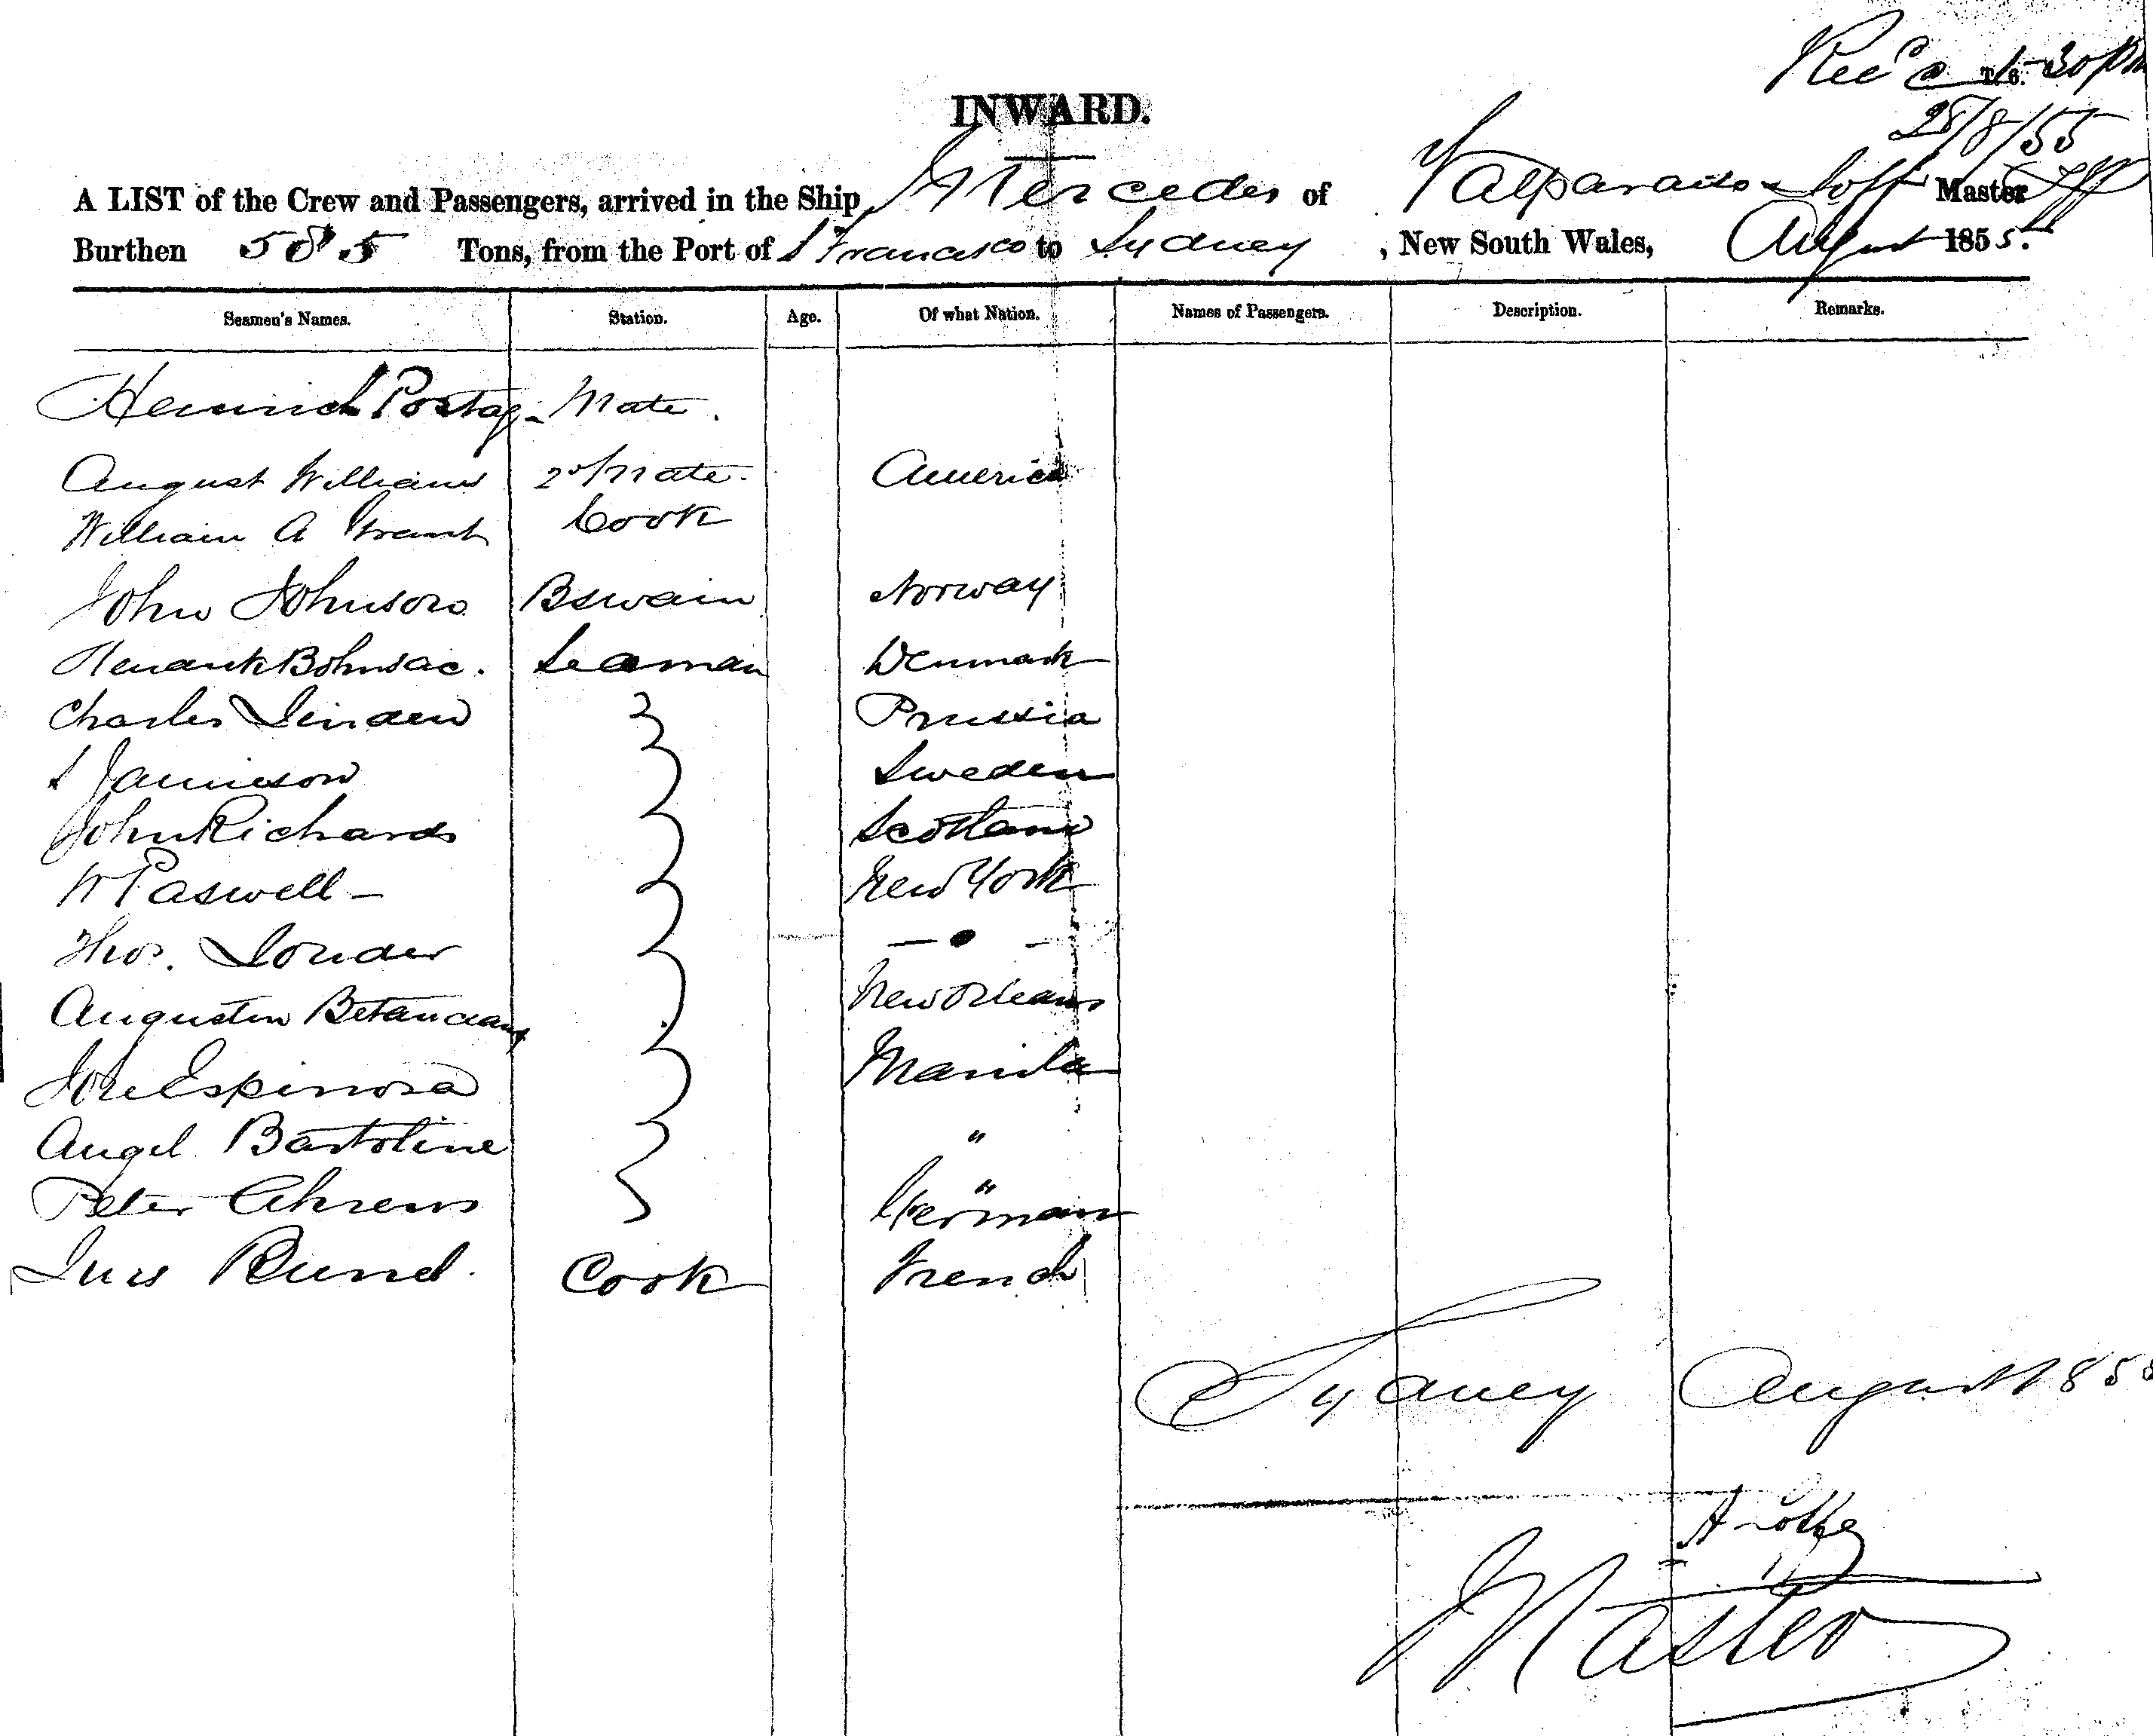 Rec'd @ 1-30 pm
T.C.
INWARD.
28/8/55
A LIST of the Crew and Passengers, arrived in the Ship Mercedes of Valparaiso Master
Burthen 585 Tons, from the Port of S Francisco to Sydney, New South Wales, August 1855.
Seamen's Names. Station. Age. Of what Nation. Names of Passengers. Description. Remarks.
Heinrich Mate.
August Williams 2d Mate. America
William A Grant Cook
John Johnson Bswain Norway
Bohnsac. Seaman Denmark
Charles Linden Prussia
S Jamieson Sweden
John Richards Scotland
W Paswell - New York
Thos. Louder — • —
Augustin New Orleans
Jose Espinosa Manila
Angel Bartoline "
Peter Ahrens " German
Luis Cook French
Sydney August 185
Master